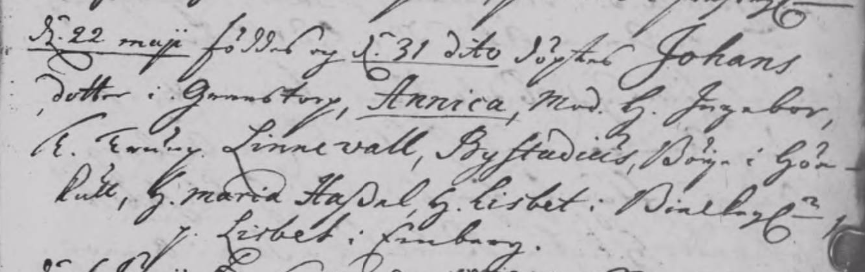 D. 22 maji föddes og d. 31 dito döptes Johans
dotter i Granstorp, Annica, Mod. H. Ingebor,
T. Linnevall, By Studiüs, Börje i Hör-
kull, H. maria Haßal, H. Lisbet i
p. Lisbet i Emberg.